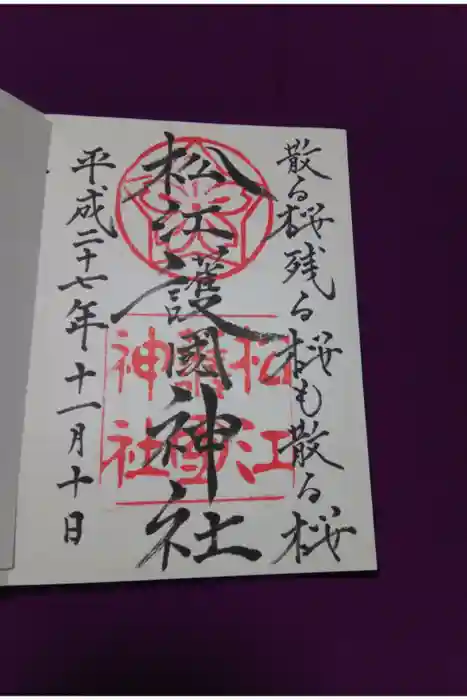 散る桜残る桜も散る桜
松江護國神社
松江
護國
神社
平成二十七年十一月十日